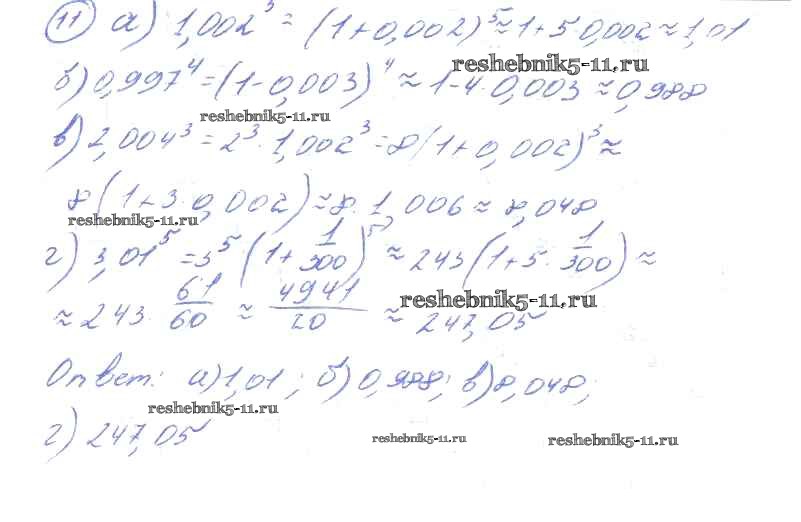 11 а) 1,002³ = (1+0,002)⁵ ≈ 1+5·0,002 ≈ 1,01
reshebnik5-11.ru
б) 0,997⁴ = (1-0,003)⁴ ≈ 1-4·0,003 ≈ 0,988
reshebnik5-11.ru
в) 2,004³ = 2³·1,002³ = 8(1+0,002)³ ≈
8(1+3·0,002) ≈ 8·1,006 ≈ 8,048
reshebnik5-11.ru
г) 3,01⁵ = 3⁵(1+1/300)⁵ ≈ 243(1+5·1/300) ≈
≈ 243·61/60 ≈ 4941/20 ≈ 247,05
reshebnik5-11.ru
Ответ: а) 1,01; б) 0,988; в) 8,048;
reshebnik5-11.ru
г) 247,05
reshebnik5-11.ru
reshebnik5-11.ru